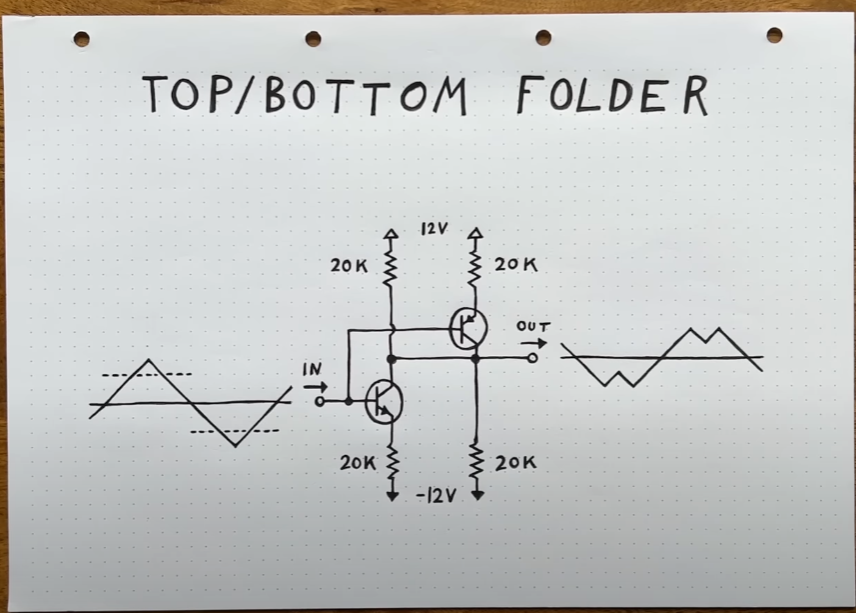 TOP/BOTTOM FOLDER
12V
20K 20K
OUT
IN
20K 20K
-12V